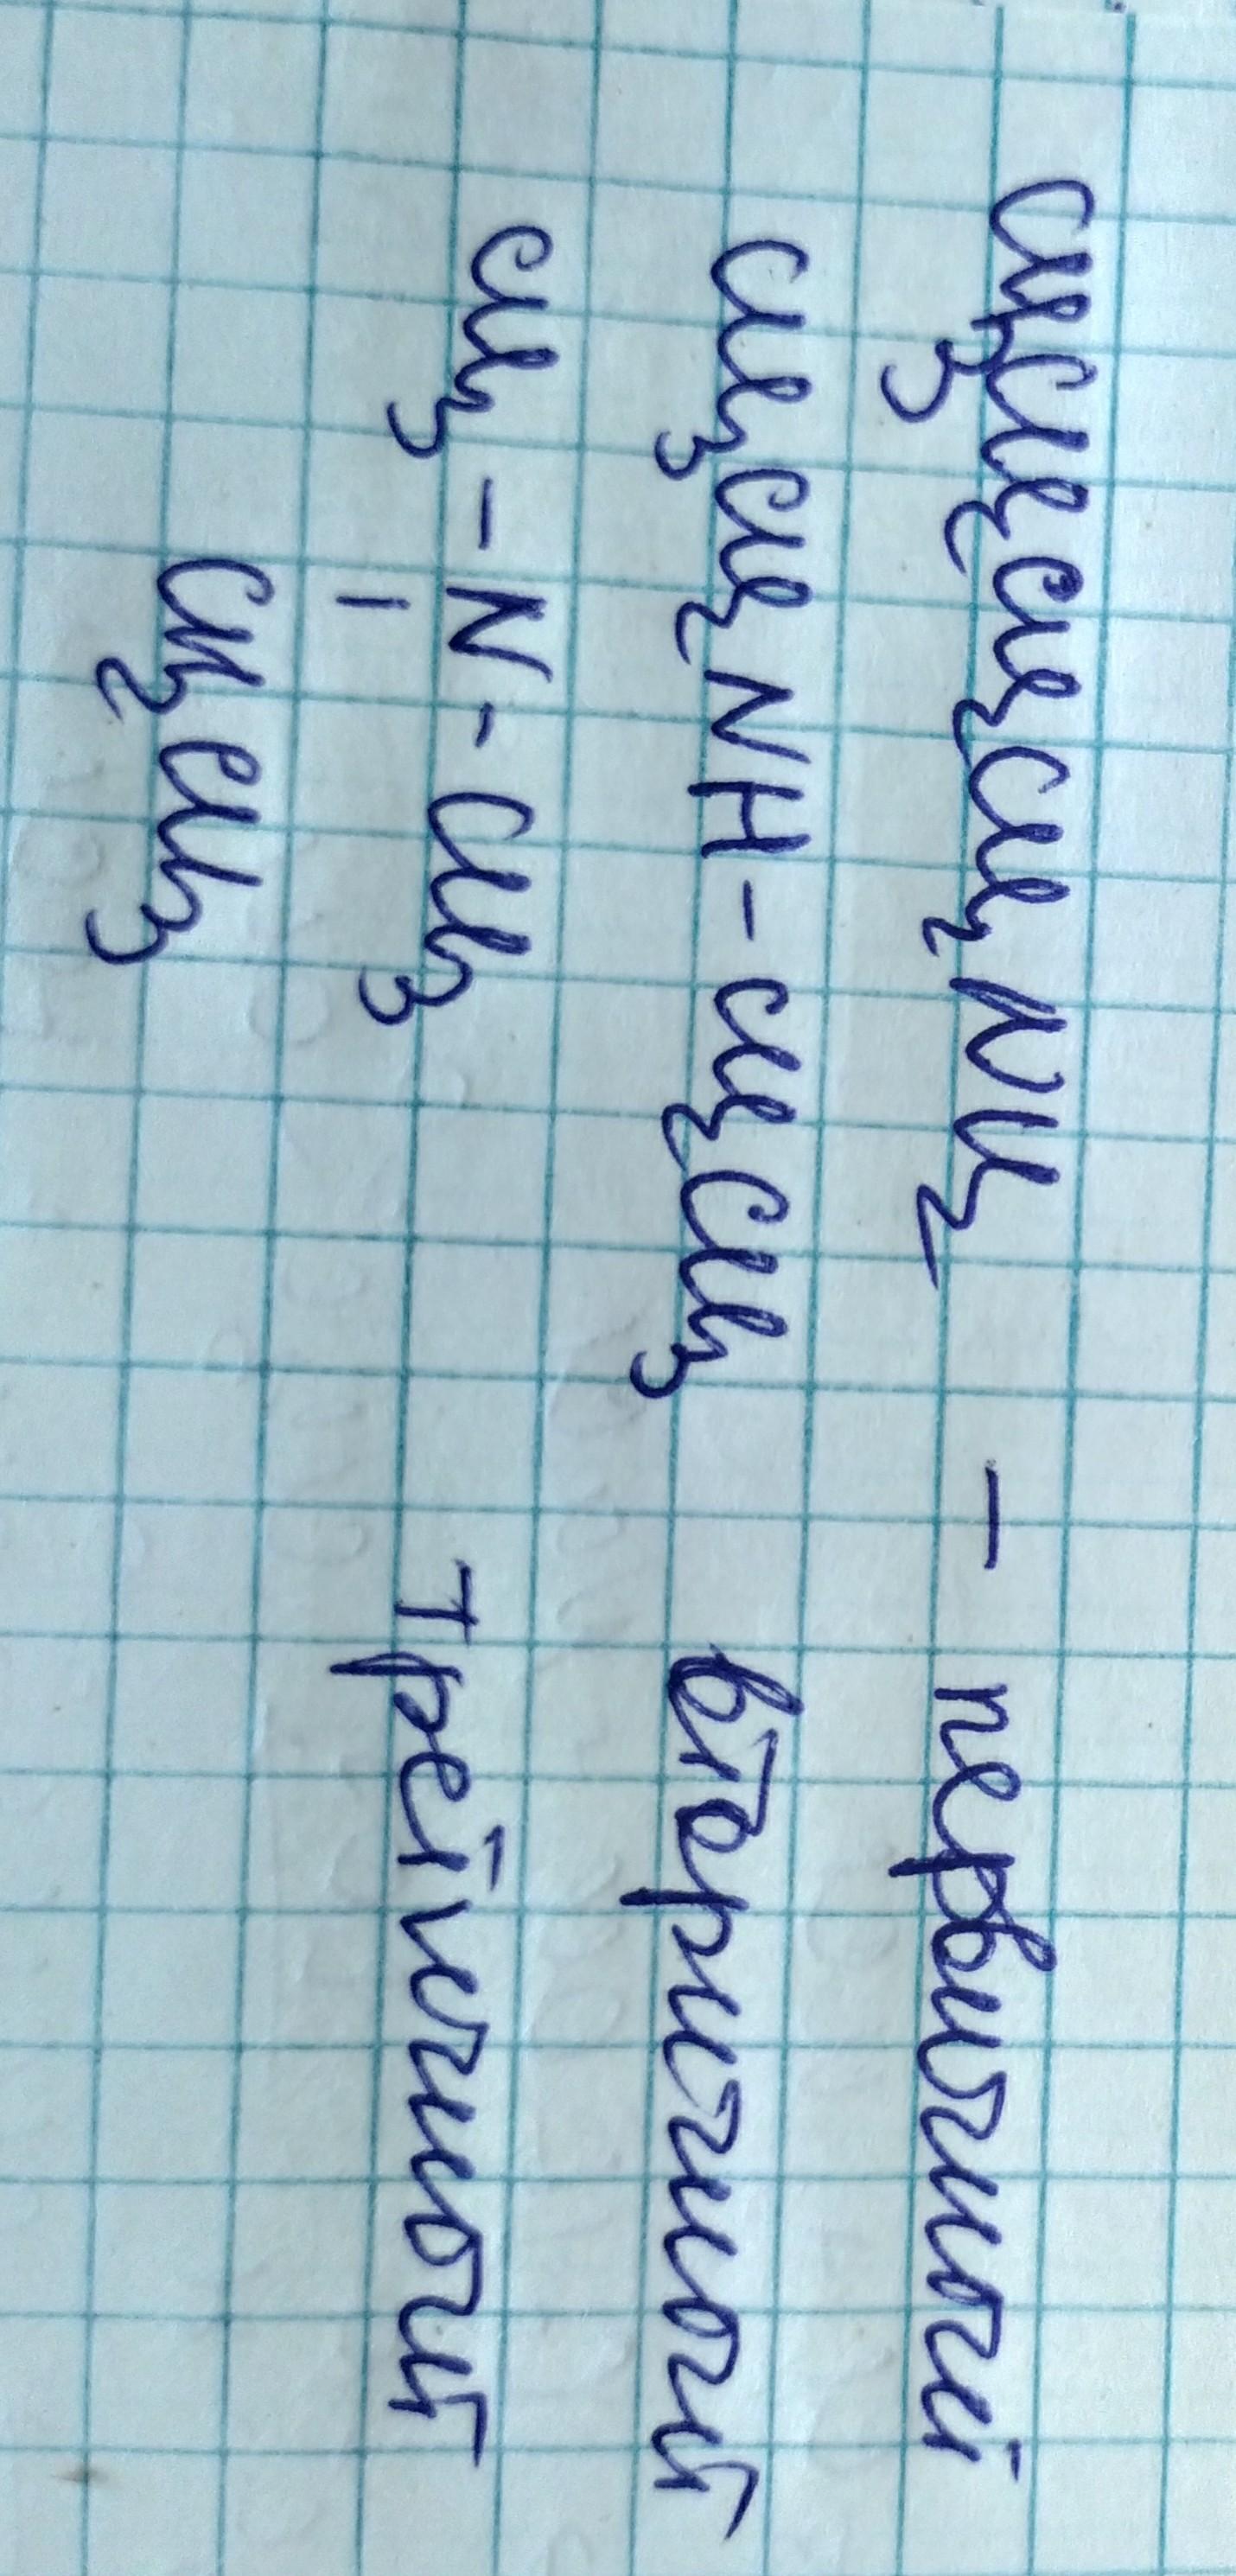 CH₃CH₂CH₂CH₂NH₂ – первичный
CH₃CH₂NH-CH₂CH₃ вторичный
CH₃-N-CH₃ третичный
|
CH₂CH₃